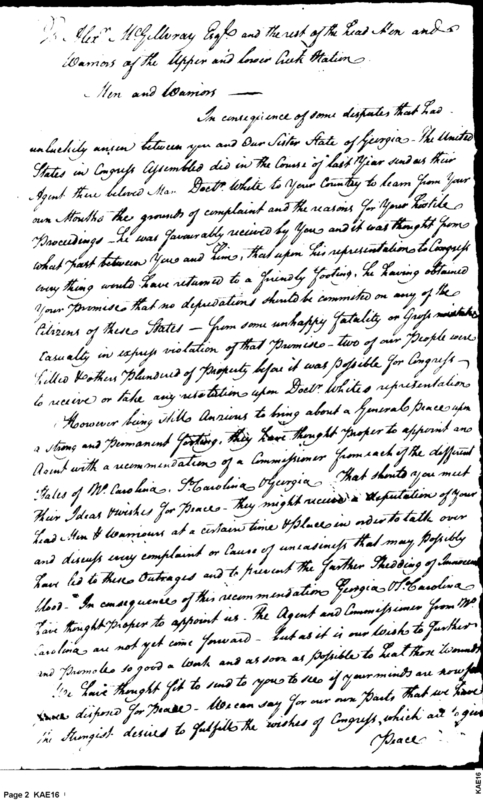 To Alexr. McGillivray Esqr. and the rest of the head Men and
Warriors of the Upper and lower Creek Nation
Men and Warriors —
In conseqience of some disputes that had
unluckily arisen between you and Our Sister State of Georgia - The United
States in Congress Assembled did in the Course of last Year send as their
Agent there beloved Man Doctr. White to Your Country to learn from Your
own Mouths the grounds of complaint and the reasons for Your hostile
Proceedings - he was favorably received by You and it was thought from
what past between You and him, that upon his representation to Congress
every thing would have returned to a friendly footing, he having obtained
Your Promise that no depredations should be commited on any of the
Citizens of these States — from some unhappy fatality or Gross mistake
Casualty in express violation of that Promise - two of our People were
killed & others Plundred of Property before it was Possible for Congress
to receive or take any resolution upon Doctr. Whites representation
However being still Anxious to bring about a General Peace upon
a strong and Permanent footing, they have thought Proper to appoint an
Agent with a recommendation of a Commissioner from each of the different
States of No. Carolina, So. Carolina & Georgia That should you meet
their Ideas & wishes for Peace - they might receive a deputation of Your
head Men & Warriours at a certain time & Place in order to talk over
and discuss every complaint or Cause of uneasiness that may Possibly
have led to these Outrages and to prevent the further Shedding of Innocent
blood - In consequence of this recommendation Georgia & So. Carolina
have thought Proper to appoint us. The Agent and Commissioner from No.
Carolina are not yet come forward - but as it is our wish to further
and Promote so good a Work and as soon as Possible to heal those Wounds
We have thought fit to send to you to see if your minds are now
disposed for Peace - We can say for our own Parts that we have
the Strongist desires to fulfill the wishes of Congress, which are to give
Peace
Page 2 KAE16
KAE16